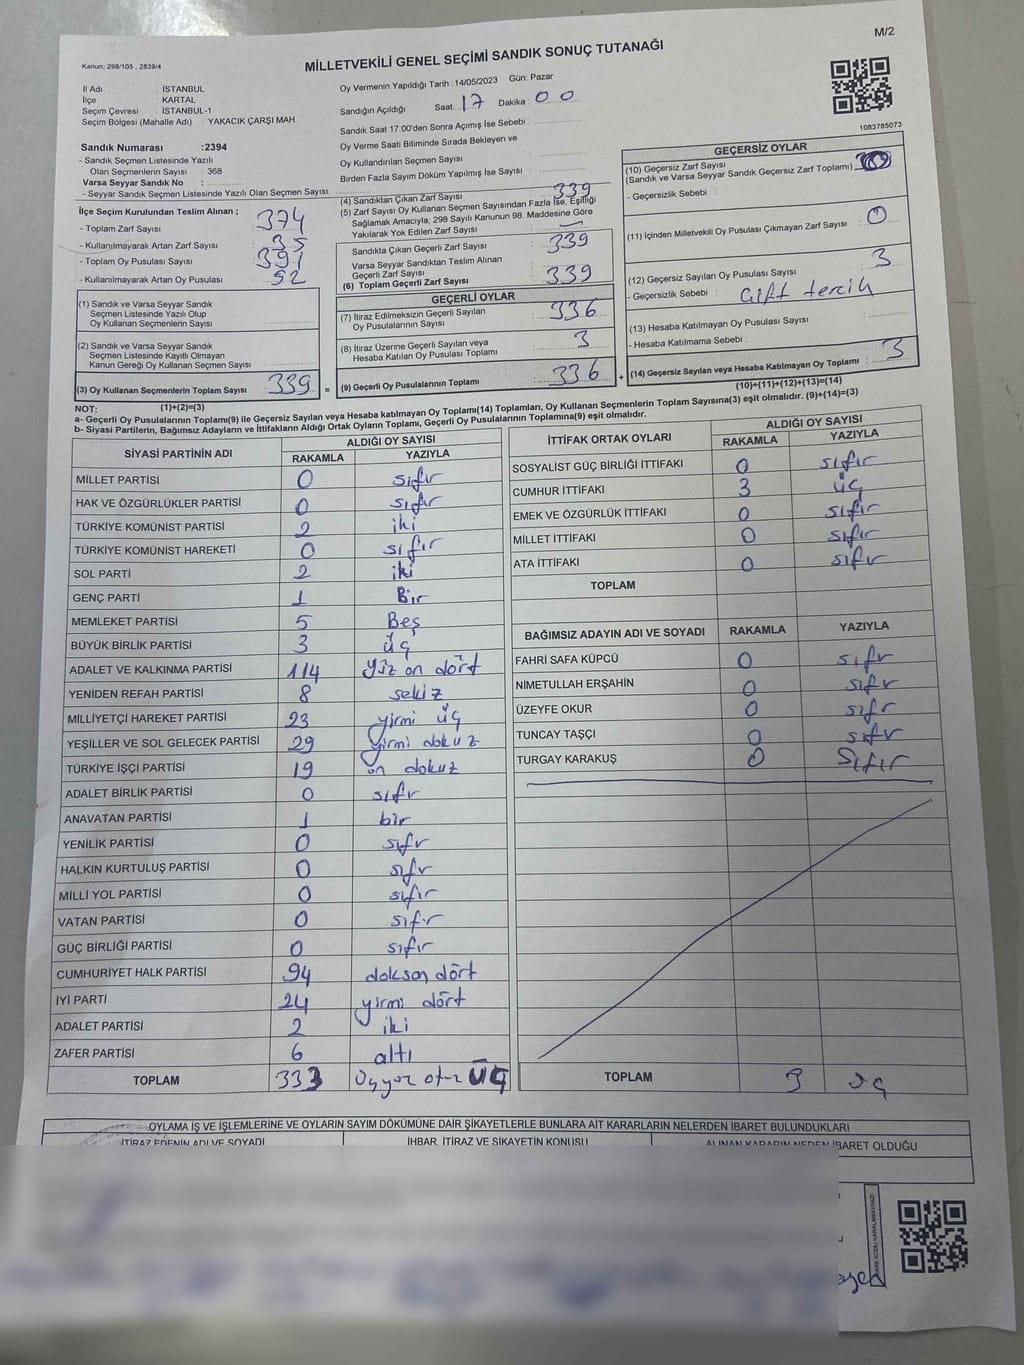 M/2
Kanun, 298/105 , 2839/4
MİLLETVEKİLİ GENEL SEÇİMİ SANDIK SONUÇ TUTANAĞI
İl Adı : İSTANBUL
İlçe : KARTAL
Seçim Çevresi : İSTANBUL-1
Seçim Bölgesi (Mahalle Adı) : YAKACIK ÇARŞI MAH
Oy Vermenin Yapıldığı Tarih : 14/05/2023 Gün: Pazar
Sandığın Açıldığı Saat: 17 Dakika: 00
Sandık Saat 17.00'den Sonra Açımış İse Sebebi :
Oy Verme Saati Bitiminde Sırada Bekleyen ve
Oy Kullandırılan Seçmen Sayısı
Birden Fazla Sayım Döküm Yapılmış İse Sayısı :
1083785073
Sandık Numarası :2394
- Sandık Seçmen Listesinde Yazılı
Olan Seçmenlerin Sayısı : 368
Varsa Seyyar Sandık No :
- Seyyar Sandık Seçmen Listesinde Yazılı Olan Seçmen Sayısı:
İlçe Seçim Kurulundan Teslim Alınan ;
- Toplam Zarf Sayısı : 374
- Kullanılmayarak Artan Zarf Sayısı : 35
- Toplam Oy Pusulası Sayısı : 391
- Kullanılmayarak Artan Oy Pusulası : 52
(1) Sandık ve Varsa Seyyar Sandık
Seçmen Listesinde Yazılı Olup
Oy Kullanan Seçmenlerin Sayısı :
(2) Sandık ve Varsa Seyyar Sandık
Seçmen Listesinde Kayıtlı Olmayan
Kanun Gereği Oy Kullanan Seçmen Sayısı :
(3) Oy Kullanan Seçmenlerin Toplam Sayısı : 339 =
(1)+(2)=(3)
(4) Sandıktan Çıkan Zarf Sayısı : 339
(5) Zarf Sayısı Oy Kullanan Seçmen Sayısından Fazla İse, Eşitliği
Sağlamak Amacıyla, 298 Sayılı Kanunun 98. Maddesine Göre
Yakılarak Yok Edilen Zarf Sayısı : —
Sandıkta Çıkan Geçerli Zarf Sayısı : 339
Varsa Seyyar Sandıktan Teslim Alınan
Geçerli Zarf Sayısı
(6) Toplam Geçerli Zarf Sayısı : 339
GEÇERLİ OYLAR
(7) İtiraz Edilmeksizin Geçerli Sayılan
Oy Pusulalarının Sayısı : 336
(8) İtiraz Üzerine Geçerli Sayılan veya
Hesaba Katılan Oy Pusulası Toplamı : 3
(9) Geçerli Oy Pusulalarının Toplamı : 336 +
GEÇERSİZ OYLAR
(10) Geçersiz Zarf Sayısı
(Sandık ve Varsa Seyyar Sandık Geçersiz Zarf Toplamı)
- Geçersizlik Sebebi :
(11) İçinden Milletvekili Oy Pusulası Çıkmayan Zarf Sayısı : 0
(12) Geçersiz Sayılan Oy Pusulası Sayısı : 3
- Geçersizlik Sebebi : Çift tercih
(13) Hesaba Katılmayan Oy Pusulası Sayısı :
- Hesaba Katılmama Sebebi :
(14) Geçersiz Sayılan veya Hesaba Katılmayan Oy Toplamı : 3
(10)+(11)+(12)+(13)=(14)
NOT:
a- Geçerli Oy Pusulalarının Toplamı(9) ile Geçersiz Sayılan veya Hesaba katılmayan Oy Toplamı(14) Toplamları, Oy Kullanan Seçmenlerin Toplam Sayısına(3) eşit olmalıdır. (9)+(14)=(3)
b- Siyasi Partilerin, Bağımsız Adayların ve İttifakların Aldığı Ortak Oyların Toplamı, Geçerli Oy Pusulalarının Toplamına(9) eşit olmalıdır.
SİYASİ PARTİNİN ADI ALDIĞI OY SAYISI
RAKAMLA YAZIYLA
MİLLET PARTİSİ 0 sıfır
HAK VE ÖZGÜRLÜKLER PARTİSİ 0 sıfır
TÜRKİYE KOMÜNİST PARTİSİ 2 iki
TÜRKİYE KOMÜNİST HAREKETİ 0 sıfır
SOL PARTİ 2 iki
GENÇ PARTİ 1 Bir
MEMLEKET PARTİSİ 5 Beş
BÜYÜK BİRLİK PARTİSİ 3 üç
ADALET VE KALKINMA PARTİSİ 114 yüz on dört
YENİDEN REFAH PARTİSİ 8 sekiz
MİLLİYETÇİ HAREKET PARTİSİ 23 yirmi üç
YEŞİLLER VE SOL GELECEK PARTİSİ 29 yirmi dokuz
TÜRKİYE İŞÇİ PARTİSİ 19 on dokuz
ADALET BİRLİK PARTİSİ 0 sıfır
ANAVATAN PARTİSİ 1 bir
YENİLİK PARTİSİ 0 sıfır
HALKIN KURTULUŞ PARTİSİ 0 sıfır
MİLLİ YOL PARTİSİ 0 sıfır
VATAN PARTİSİ 0 sıfır
GÜÇ BİRLİĞİ PARTİSİ 0 sıfır
CUMHURİYET HALK PARTİSİ 94 doksan dört
İYİ PARTİ 24 yirmi dört
ADALET PARTİSİ 2 iki
ZAFER PARTİSİ 6 altı
TOPLAM 333 üçyüz otuz ÜÇ
İTTİFAK ORTAK OYLARI ALDIĞI OY SAYISI
RAKAMLA YAZIYLA
SOSYALİST GÜÇ BİRLİĞİ İTTİFAKI 0 sıfır
CUMHUR İTTİFAKI 3 üç
EMEK VE ÖZGÜRLÜK İTTİFAKI 0 sıfır
MİLLET İTTİFAKI 0 sıfır
ATA İTTİFAKI 0 sıfır
TOPLAM
BAĞIMSIZ ADAYIN ADI VE SOYADI RAKAMLA YAZIYLA
FAHRİ SAFA KÜPCÜ 0 sıfır
NİMETULLAH ERŞAHİN 0 sıfır
ÜZEYFE OKUR 0 sıfır
TUNCAY TAŞÇI 0 sıfır
TURGAY KARAKUŞ 0 Sıfır
TOPLAM 3 üç
OYLAMA İŞ VE İŞLEMLERİNE VE OYLARIN SAYIM DÖKÜMÜNE DAİR ŞİKAYETLERLE BUNLARA AİT KARARLARIN NELERDEN İBARET BULUNDUKLARI
İTİRAZ EDENİN ADI VE SOYADI İHBAR, İTİRAZ VE ŞİKAYETİN KONUSU ALINAN KARARIN NEDEN İBARET OLDUĞU
KARE KODU KARALAMAYINIZ!